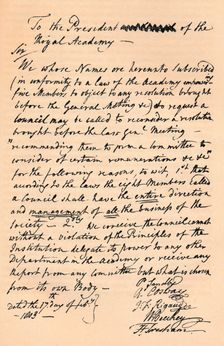 To the President of the
Royal Academy —
Sir
We whose Names are hereunto Subscribed
(in conformity to a Law of the Academy
five Members, to object to any resolution brought
before the General Meeting &c) do request a
Council may be called to reconsider a resolution
brought before the last Genl Meeting —
"recommending them to form a Committee to
consider of certain remunerations &c &c"
for the following reasons, to wit, 1st that
according to the laws the eight Members called
a Council shall have the entire direction
and management of all the business of the
Society — 2dly We conceive the Council cannot
without a violation of the Principles of the
Institution delegate its power to any other
Department in the Academy or receive any
Report from any Committee but what is chosen
from its own Body —
J S Copley
dated the 17 day of
1803